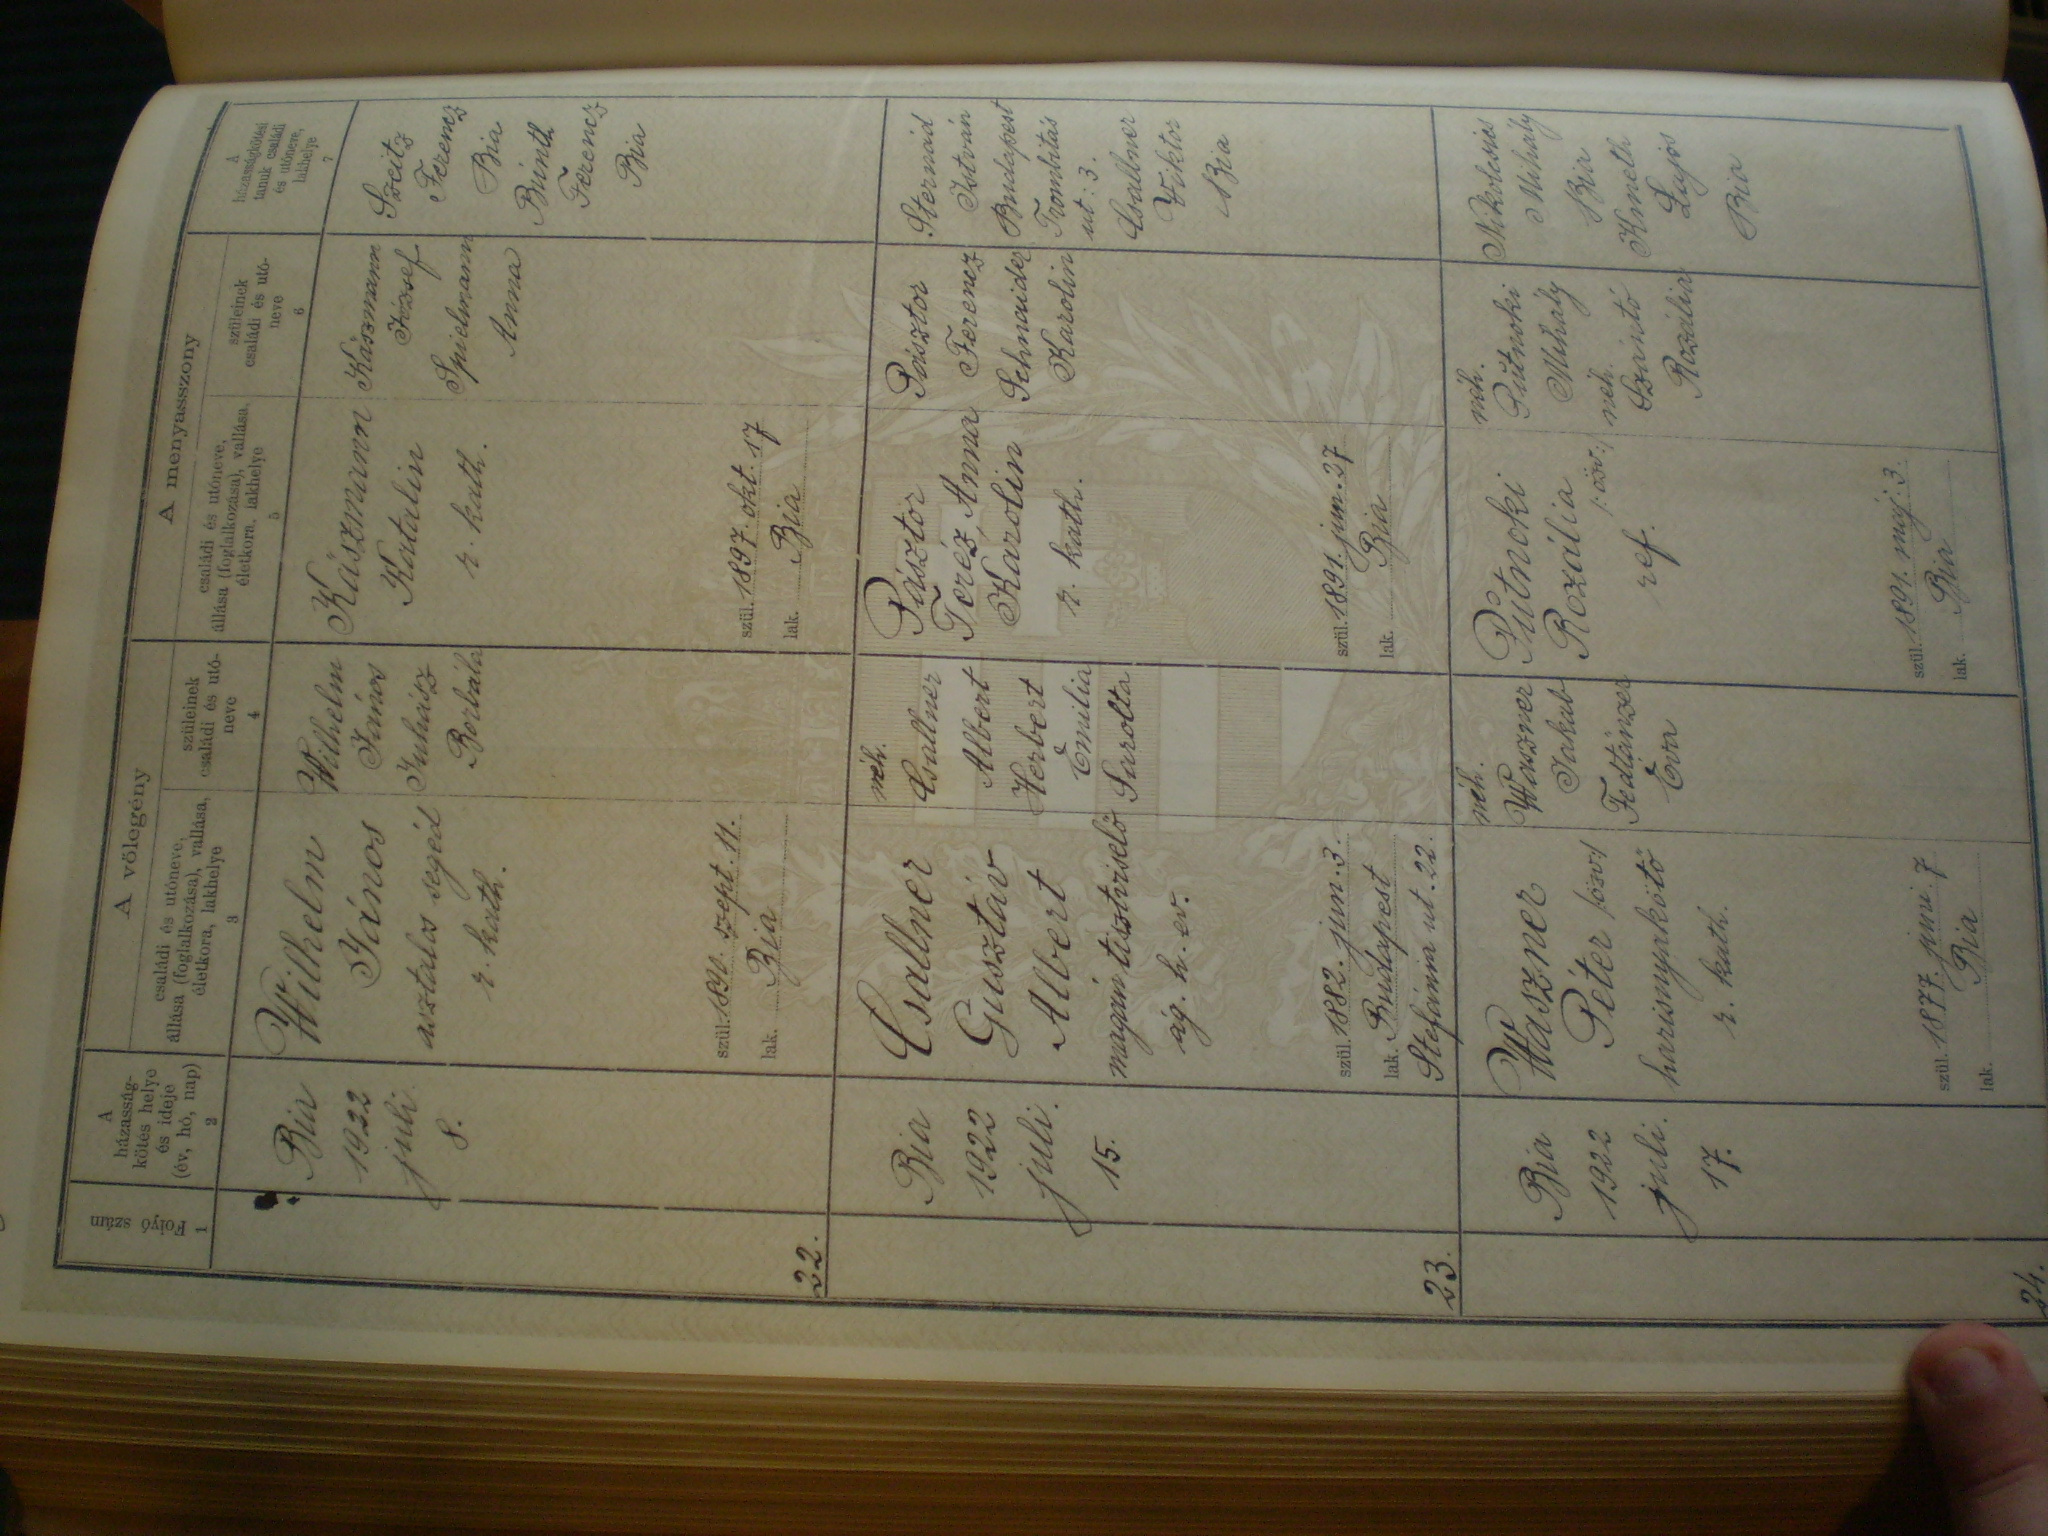 Folyó szám
1
A
házasság-
kötés helye
és ideje
(év, hó, nap)
2
A vőlegény
családi és utóneve,
állása (foglalkozása), vallása,
életkora, lakhelye
3
szüleinek
családi és utó-
neve
4
A menyasszony
családi és utóneve,
állása (foglalkozása), vallása,
életkora, lakhelye
5
szüleinek
családi és utó-
neve
6
A
házasságkötési
tanuk családi
és utóneve,
lakhelye
7
22.
Bia
1922
juli.
8.
Wilhelm
János
asztalos segéd
r. kath.
szül. 1890. szept. 11.
lak. Bia
Wilhelm
János
Juhász
Borbála
Kászmann
Katalin
r. kath.
szül. 1897. okt. 17
lak. Bia
Kászmann
József
Spielmann
Anna
Szeitz
Ferencz
Bia
Binth
Ferencz
Bia
23.
Bia
1922
juli.
15.
Csallner
Gusztáv
Albert
magán tisztviselő
ág. h. ev.
szül. 1882. jun. 3.
lak. Budapest
Stefánia ut. 22.
néh.
Csallner
Albert
Herbert
Emilia
Sarolta
Pásztor
Teréz, Anna
Karolin
r. kath.
szül. 1891. jun. 27
lak. Bia
Pásztor
Ferencz
Schnaider
Karolin
Sternád
István
Budapest
Trombitás
ut: 3.
Csallner
Viktor
Bia
24.
Bia
1922
juli.
17.
Waszner
Péter
harisnyakötő
r. kath.
szül. 1877. juni. 7
lak. Bia
néh.
Waszner
Jakab
Fedtänzer
Éva
Putnoki
Rozália
/: özv :/
ref.
szül. 1891. máj. 3.
lak. Bia
néh.
Putnoki
Mihály
néh.
Szántó
Rozália
Nikolcsics
Mihály
Bia
Kmeth
Lajos
Bia